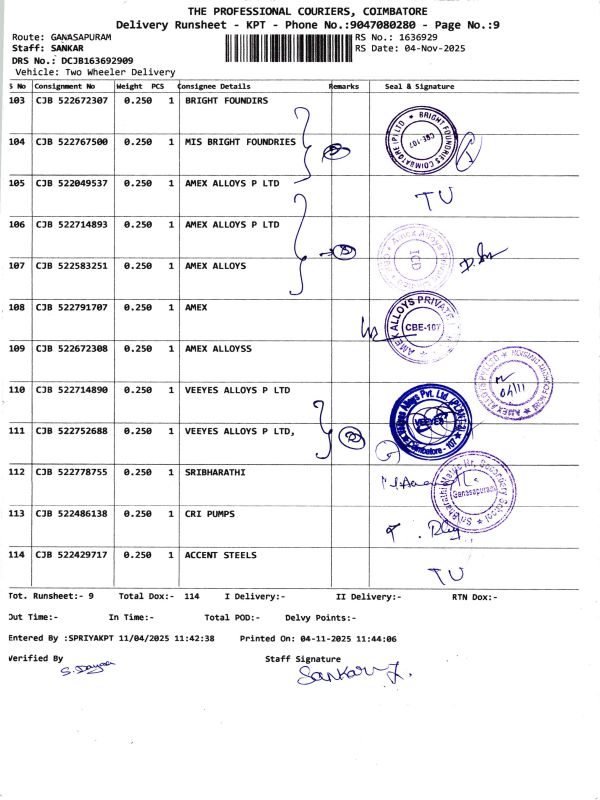 THE PROFESSIONAL COURIERS, COIMBATORE
Delivery Runsheet - KPT - Phone No.:9047080280 - Page No.:9
Route: GANASAPURAM RS No.: 1636929
Staff: SANKAR RS Date: 04-Nov-2025
DRS No.: DCJB163692909
Vehicle: Two Wheeler Delivery
S No Consignment No Weight PCS Consignee Details Remarks Seal & Signature
103 CJB 522672307 0.250 1 BRIGHT FOUNDIRS
104 CJB 522767500 0.250 1 MIS BRIGHT FOUNDRIES
BRIGHT FOUNDRIES COIMBATORE (P) LTD
CBE-107
105 CJB 522049537 0.250 1 AMEX ALLOYS P LTD
TU
106 CJB 522714893 0.250 1 AMEX ALLOYS P LTD
107 CJB 522583251 0.250 1 AMEX ALLOYS
108 CJB 522791707 0.250 1 AMEX
AMEX ALLOYS PRIVATE
CBE-107
109 CJB 522672308 0.250 1 AMEX ALLOYSS
110 CJB 522714890 0.250 1 VEEYES ALLOYS P LTD
111 CJB 522752688 0.250 1 VEEYES ALLOYS P LTD,
VEEYES
Coimbatore - 107
112 CJB 522778755 0.250 1 SRIBHARATHI
Ganasapuram
113 CJB 522486138 0.250 1 CRI PUMPS
114 CJB 522429717 0.250 1 ACCENT STEELS
TU
Tot. Runsheet:- 9 Total Dox:- 114 I Delivery:- II Delivery:- RTN Dox:-
Out Time:- In Time:- Total POD:- Delvy Points:-
Entered By :SPRIYAKPT 11/04/2025 11:42:38 Printed On: 04-11-2025 11:44:06
Verified By Staff Signature
Sankar